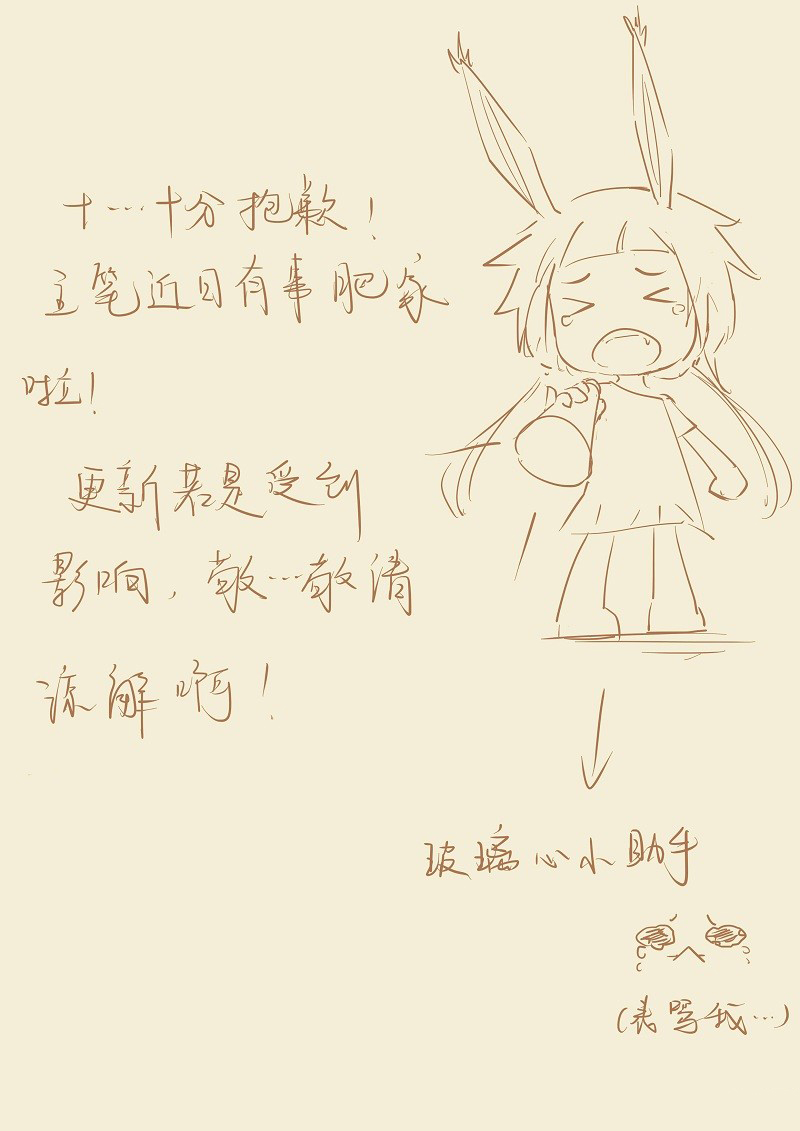 十…十分抱歉！
主笔近日有事肥家
啦！
更新若是受到
影响，敬…敬请
谅解啊！
玻璃心小助手
(表骂我…)